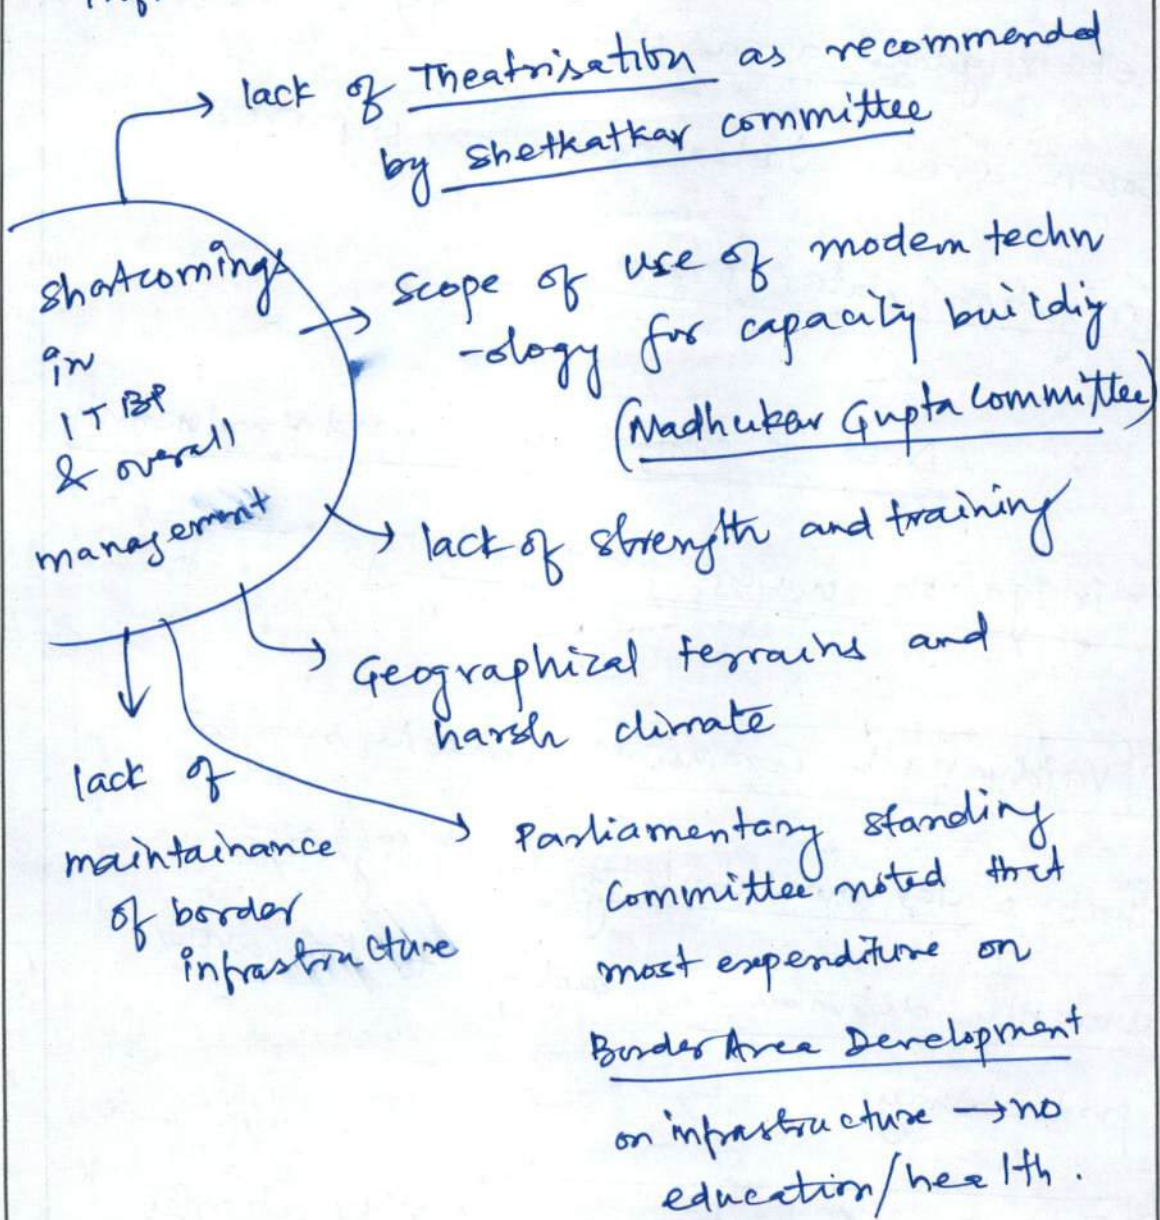 lack of Theatrisation as recommended
by Shetkatkar committee
Shortcomings
in
ITBP
& overall
management
Scope of use of modern techn
-ology for capacity building
(Madhukar Gupta Committee)
lack of strength and training
Geographical terrains and
harsh climate
lack of
maintainance
of border
infrastructure
Parliamentary standing
Committee noted that
most expenditure on
Border Area Development
on infrastructure → no
education/health.